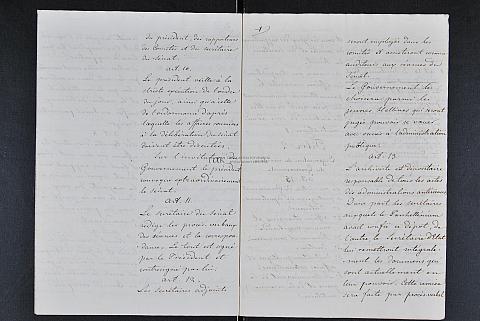 du président des rapporteurs
des Comités et du secrétaire
du Sénat.
Art. 10.
Le président veille à la
stricte exécution de l'ordre
du jour, ainsi qu'à celle
de l'ordonnance d'après
laquelle les affaires soumises
à la délibération du Sénat
doivent être discutées.
Sur l'invitation du
Gouvernement le président
convoque extraordinairement
le Sénat.
Art. 11.
Le secrétaire du Sénat
rédige les procès verbaux
des séances et la correspon-
dance. Le tout est signé
par le Président et
contresigné par lui.
Art. 12.
Les secrétaires adjoints
seront employés dans les
comités et assisteront comme
auditeurs aux séances du
Sénat.
Le Gouvernement les
choisira parmi les
jeunes Hellènes qui seront
jugés pouvoir se vouer
avec succès à l'administration
publique.
Art. 13.
L'archiviste est dépositaire
responsable de tous les actes
des administrations antérieures
D'une part les secrétaires
auxquels le Panhellénium
avait confié ce dépôt de
l'autre le Secrétaire d'Etat
lui remettront intégrale-
ment les documens qui
sont actuellement en
leur pouvoir. Cette remise
sera faite par procès verbal